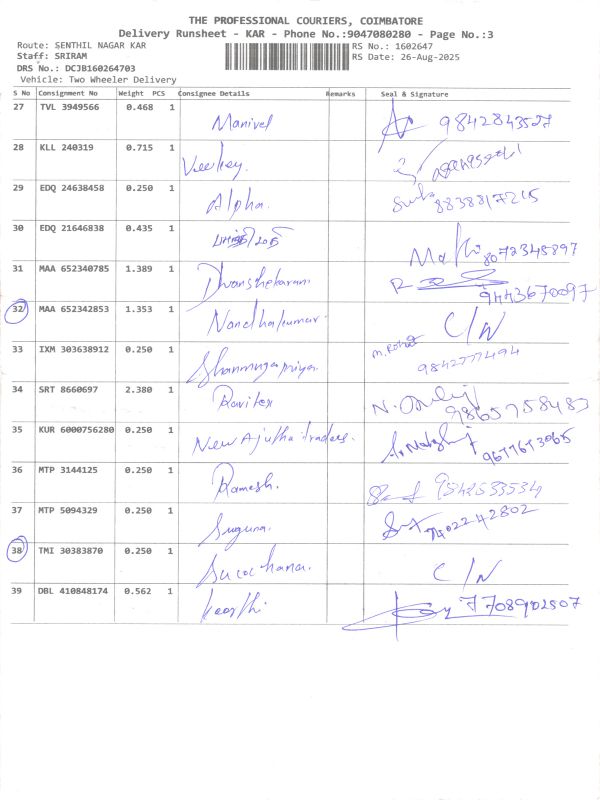 THE PROFESSIONAL COURIERS, COIMBATORE
Delivery Runsheet - KAR - Phone No.:9047080280 - Page No.:3
Route: SENTHIL NAGAR KAR RS No.: 1602647
Staff: SRIRAM RS Date: 26-Aug-2025
DRS No.: DCJB160264703
Vehicle: Two Wheeler Delivery
S No Consignment No Weight PCS Consignee Details Remarks Seal & Signature
27 TVL 3949566 0.468 1 Manivel
28 KLL 240319 0.715 1
29 EDQ 24638458 0.250 1 Alpha. 8838817215
30 EDQ 21646838 0.435 1 8072345897
31 MAA 652340785 1.389 1 Dhanshekaran 9443670097
32 MAA 652342853 1.353 1 Nandhakumar C/N
33 IXM 303638912 0.250 1 Shanmugapriya. 9842777494
34 SRT 8660697 2.380 1 Ravitex
35 KUR 6000756280 0.250 1 New Ajutha traders.
36 MTP 3144125 0.250 1 Ramesh. 9542533534
37 MTP 5094329 0.250 1 Suguna. 7402242802
38 TMI 30383870 0.250 1 C/N
39 DBL 410848174 0.562 1 Keerthi 7708902507